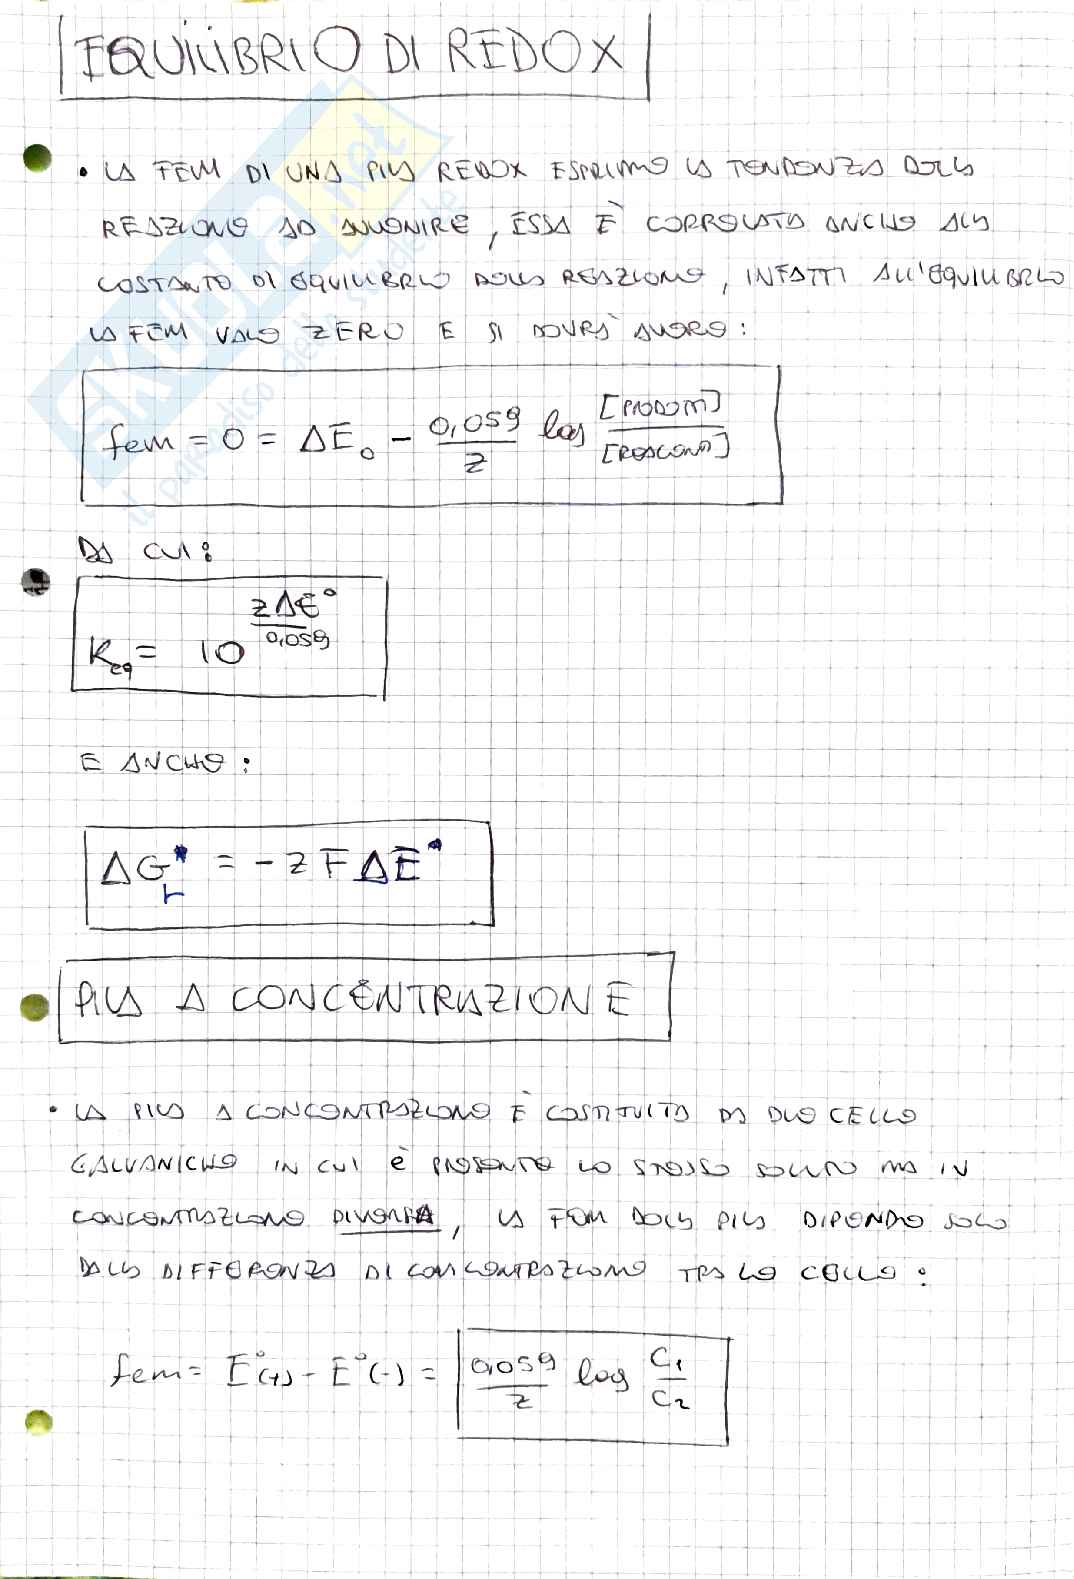 EQUILIBRIO DI REDOX
• LA FEM DI UNA PILA REDOX ESPRIME LA TENDENZA DELLA
REAZIONE AD AVVENIRE, ESSA È CORRELATA ANCHE ALLA
COSTANTE DI EQUILIBRIO DELLA REAZIONE, INFATTI ALL'EQUILIBRIO
LA FEM VALE ZERO E SI DOVRÀ AVERE:
fem = 0 = ΔE₀ - 0,059/z log [PRODOTTI]/[REAGENTI]
DA CUI:
Keq = 10^(zΔE°/0,059)
E ANCHE:
ΔG°r = -zFΔE°
PILA A CONCENTRAZIONE
• LA PILA A CONCENTRAZIONE È COSTITUITA DA DUE CELLE
GALVANICHE IN CUI È PRESENTE LO STESSO SOLUTO MA IN
CONCENTRAZIONE DIVERSA, LA FEM DELLA PILA DIPENDE SOLO
DALLA DIFFERENZA DI CONCENTRAZIONE TRA LE CELLE:
fem = E°(+) - E°(-) = 0,059/z log C₁/C₂
skuola.net
il paradiso dello studente